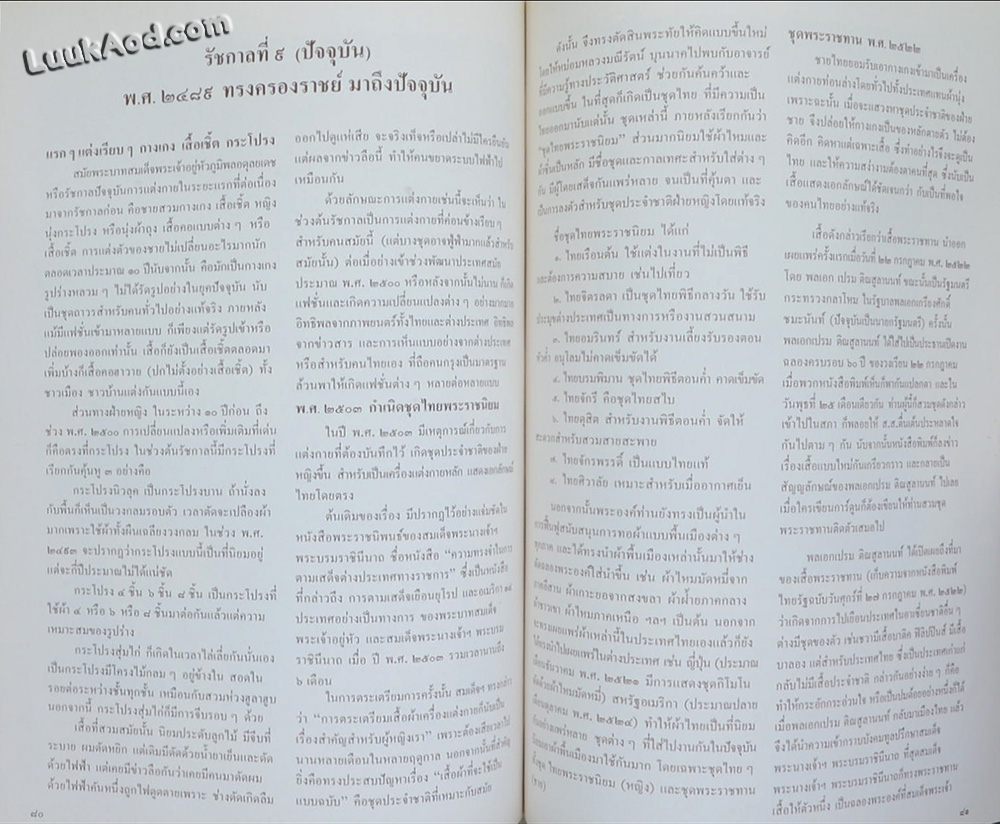 LuukAod.com
รัชกาลที่ ๙ (ปัจจุบัน)
พ.ศ. ๒๔๘๙ ทรงครองราชย์ มาถึงปัจจุบัน
แรก ๆ แต่งเรียบ ๆ กางเกง เสื้อเชิ้ต กระโปรง
สมัยพระบาทสมเด็จพระเจ้าอยู่หัวภูมิพลอดุลยเดช
หรือรัชกาลปัจจุบันการแต่งกายในระยะแรกที่ต่อเนื่อง
มาจากรัชกาลก่อน คือชายสวมกางเกง เสื้อเชิ้ต หญิง
นุ่งกระโปรง หรือนุ่งผ้าถุง เสื้อคอแบบต่าง ๆ หรือ
เสื้อเชิ้ต การแต่งตัวของชายไม่เปลี่ยนอะไรมากนัก
ตลอดเวลาประมาณ ๑๐ ปีนับจากนั้น คือมักเป็นกางเกง
รูปร่างหลวม ๆ ไม่ได้รัดรูปอย่างในยุคปัจจุบัน นับ
เป็นชุดถาวรสำหรับคนทั่วไปอย่างแท้จริง ภายหลัง
แม้มีแฟชั่นเข้ามาหลายแบบ ก็เพียงแต่รัดรูปเข้าหรือ
ปล่อยพองออกเท่านั้น เสื้อก็ยังเป็นเสื้อเชิ้ตตลอดมา
เพิ่มบ้างก็เสื้อคอฮาวาย (ปกไม่ตั้งอย่างเสื้อเชิ้ต) ทั้ง
ชาวเมือง ชาวบ้านแต่งกันแบบนี้เอง
ส่วนทางฝ่ายหญิง ในระหว่าง ๑๐ ปีก่อน ถึง
ช่วง พ.ศ. ๒๕๐๐ การเปลี่ยนแปลงหรือเพิ่มเติมที่เด่น
ก็คือตรงที่กระโปรง ในช่วงต้นรัชกาลนี้มีกระโปรงที่
เรียกกันคุ้นหู ๓ อย่างคือ
กระโปรงนิวลุค เป็นกระโปรงบาน ถ้านั่งลง
กับพื้นก็เห็นเป็นวงกลมรอบตัว เวลาตัดจะเปลืองผ้า
มากเพราะใช้ผ้าทั้งผืนเฉลียงวงกลม ในช่วง พ.ศ.
๒๔๙๓ จะปรากฏว่ากระโปรงแบบนี้เป็นที่นิยมอยู่
แต่จะกี่ปีประมาณไม่ได้แน่ชัด
กระโปรง ๔ ชิ้น ๖ ชิ้น ๘ ชิ้น เป็นกระโปรงที่
ใช้ผ้า ๔ หรือ ๖ หรือ ๘ ชิ้นมาต่อกันแล้วแต่ความ
เหมาะสมของรูปร่าง
กระโปรงสุ่มไก่ ก็เกิดในเวลาไล่เลี่ยกันนั่นเอง
เป็นกระโปรงมีโครงไม้กลม ๆ อยู่ข้างใน สอดใน
รอยต่อระหว่างชั้นทุกชั้น เหมือนกับสวมห่วงฮูลาฮูบ
นอกจากนี้ กระโปรงสุ่มไก่ก็มีการจีบรอบ ๆ ด้วย
เสื้อที่สวมสมัยนั้น นิยมประดับลูกไม้ มีจีบที่
ระบาย ผมดัดหยิก แต่เดิมมีดัดด้วยน้ำยาเย็นและดัด
ด้วยไฟฟ้า แต่เคยมีข่าวลือกันว่าเคยมีคนมาดัดผม
ด้วยไฟฟ้าคันหนึ่งถูกไฟดูดตายเพราะ ช่างดัดเกิดลืม
๘๐
ออกไปดูแห่เสีย จะจริงเท็จหรือเปล่าไม่มีใครยืนยัน
แต่ผลจากข่าวลือนี้ ทำให้คนขยาดระบบไฟฟ้าไป
เหมือนกัน
ด้วยลักษณะการแต่งกายเช่นนี้จะเห็นว่า ใน
ช่วงต้นรัชกาลเป็นการแต่งกายที่ค่อนข้างเรียบ ๆ
สำหรับคนสมัยนี้ (แต่บางชุดอาจฟู่ฟ่ามากแล้วสำหรับ
สมัยนั้น) ต่อเมื่อย่างเข้าช่วงพัฒนาประเทศสมัย
ประมาณ พ.ศ. ๒๕๐๐ หรือหลังจากนั้นไม่นาน ก็เกิด
แฟชั่นและเกิดความเปลี่ยนแปลงต่าง ๆ อย่างมากมาย
อิทธิพลจากภาพยนตร์ทั้งไทยและต่างประเทศ อิทธิพล
จากข่าวสาร และการเห็นแบบอย่างจากต่างประเทศ
หรือสำหรับคนไทยเอง ที่ถือคนกรุงเป็นมาตรฐาน
ล้วนพาให้เกิดแฟชั่นต่าง ๆ หลายต่อหลายแบบ
พ.ศ. ๒๕๐๓ กำเนิดชุดไทยพระราชนิยม
ในปี พ.ศ. ๒๕๐๓ มีเหตุการณ์เกี่ยวกับการ
แต่งกายที่ต้องบันทึกไว้ เกิดชุดประจำชาติของฝ่าย
หญิงขึ้น สำหรับเป็นเครื่องแต่งกายหลัก แสดงเอกลักษณ์
ไทยโดยตรง
ต้นเดิมของเรื่อง มีปรากฏไว้อย่างแจ่มชัดใน
หนังสือพระราชนิพนธ์ของสมเด็จพระนางเจ้าฯ
พระบรมราชินีนาถ ชื่อหนังสือ “ความทรงจำในการ
ตามเสด็จต่างประเทศทางราชการ” ซึ่งเป็นหนังสือ
ที่กล่าวถึง การตามเสด็จเยือนยุโรป และอเมริกา ๑๔
ประเทศอย่างเป็นทางการ ของพระบาทสมเด็จ
พระเจ้าอยู่หัว และสมเด็จพระนางเจ้าฯ พระบรม
ราชินีนาถ เมื่อ ปี พ.ศ. ๒๕๐๓ รวมเวลานานถึง
๖ เดือน
ในการตระเตรียมการครั้งนั้น สมเด็จฯ ทรงกล่าว
ว่า “การตระเตรียมเสื้อผ้าเครื่องแต่งกายก็นับเป็น
เรื่องสำคัญสำหรับผู้หญิงเรา” เพราะต้องเสียเวลาไป
นานหลายเดือนในหลายฤดูกาล นอกจากนั้นที่สำคัญ
ยิ่งคือทรงประสบปัญหาเรื่อง “เสื้อผ้าที่จะใช้เป็น
แบบฉบับ” คือชุดประจำชาติที่เหมาะกับสมัย
ดังนั้น จึงทรงตัดสินพระทัยให้คิดแบบขึ้นใหม่
โดยให้หม่อมหลวงมณีรัตน์ บุนนาคไปพบกับอาจารย์
ที่มีความรู้ทางประวัติศาสตร์ ช่วยกันค้นคว้าและ
ออกแบบขึ้น ในที่สุดก็เกิดเป็นชุดไทย ที่มีความเป็น
ไทยออกมานับแต่นั้น ชุดเหล่านี้ ภายหลังเรียกกันว่า
“ชุดไทยพระราชนิยม” ส่วนมากนิยมใช้ผ้าไหมและ
ผ้าซิ่นเป็นหลัก มีชื่อชุดและกาลเทศะสำหรับใส่ต่าง ๆ
กัน มีผู้โดยเสด็จกันแพร่หลาย จนเป็นที่คุ้นตา และ
เป็นการลงตัวสำหรับชุดประจำชาติฝ่ายหญิงโดยแท้จริง
ชื่อชุดไทยพระราชนิยม ได้แก่
๑. ไทยเรือนต้น ใช้แต่งในงานที่ไม่เป็นพิธี
และต้องการความสบาย เช่นไปเที่ยว
๒. ไทยจิตรลดา เป็นชุดไทยพิธีกลางวัน ใช้รับ
ประมุขต่างประเทศเป็นทางการหรืองานสวนสนาม
๓. ไทยอมรินทร์ สำหรับงานเลี้ยงรับรองตอน
หัวค่ำ อนุโลมไม่คาดเข็มขัดได้
๔. ไทยบรมพิมาน ชุดไทยพิธีตอนค่ำ คาดเข็มขัด
๕. ไทยจักรี คือชุดไทยสไบ
๖. ไทยดุสิต สำหรับงานพิธีตอนค่ำ จัดให้
สะดวกสำหรับสวมสายสะพาย
๗. ไทยจักรพรรดิ์ เป็นแบบไทยแท้
๘. ไทยศิวาลัย เหมาะสำหรับเมื่ออากาศเย็น
นอกจากนั้นพระองค์ท่านยังทรงเป็นผู้นำใน
การฟื้นฟูสนับสนุนการทอผ้าแบบพื้นเมืองต่าง ๆ
ทุกภาค และได้ทรงนำผ้าพื้นเมืองเหล่านั้นมาให้ช่าง
ตัดฉลองพระองค์ใส่นำขึ้น เช่น ผ้าไหมมัดหมี่จาก
ภาคอีสาน ผ้าเกาะยอจากสงขลา ผ้าฝ้ายภาคกลาง
ผ้าชาวเขา ผ้าไหมภาคเหนือ ฯลฯ เป็นต้น นอกจาก
จะทรงเผยแพร่ผ้าเหล่านี้ในประเทศไทยเองแล้วก็ยัง
ได้ทรงนำไปเผยแพร่ในต่างประเทศ เช่น ญี่ปุ่น (ประมาณ
เดือนธันวาคม พ.ศ. ๒๕๒๑ มีการแสดงชุดกิโมโน
ตัดด้วยผ้าไหมมัดหมี่) สหรัฐอเมริกา (ประมาณปลาย
เดือนตุลาคม พ.ศ. ๒๕๒๔) ทำให้ผ้าไทยเป็นที่นิยม
กันอย่างแพร่หลาย ชุดต่าง ๆ ที่ใส่ไปงานกันในปัจจุบัน
นิยมเอาผ้าพื้นเมืองมาใช้กันมาก โดยเฉพาะชุดไทย ๆ
ทั้งชุด ไทยพระราชนิยม (หญิง) และชุดพระราชทาน
(ชาย)
ชุดพระราชทาน พ.ศ. ๒๕๒๒
ชายไทยยอมรับเอากางเกงเข้ามาเป็นเครื่อง
แต่งกายท่อนล่างโดยทั่วไปทั้งประเทศแทนผ้านุ่ง
เพราะฉะนั้น เมื่อจะแสวงหาชุดประจำชาติของฝ่าย
ชาย จึงปล่อยให้กางเกงเป็นของหลักตายตัว ไม่ต้อง
คิดอีก คิดหาแต่เฉพาะเสื้อ ซึ่งทำอย่างไรจึงจะดูเป็น
ไทย และให้ความสง่างามต้องตาคนที่สุด ซึ่งนับเป็น
เสื้อแสดงเอกลักษณ์ได้ชัดเจนกว่า กันเป็นที่พอใจ
ของคนไทยอย่างแท้จริง
เสื้อดังกล่าวเรียกว่าเสื้อพระราชทาน นำออก
เผยแพร่ครั้งแรกเมื่อวันที่ ๒๒ กรกฎาคม พ.ศ. ๒๕๒๒
โดย พลเอก เปรม ติณสูลานนท์ ขณะนั้นเป็นรัฐมนตรี
กระทรวงกลาโหม ในรัฐบาลพลเอกเกรียงศักดิ์
ชมะนันท์ (ปัจจุบันเป็นนายกรัฐมนตรี) ครั้งนั้น
พลเอกเปรม ติณสูลานนท์ ได้ใส่ไปเป็นประธานเปิดงาน
ฉลองครบรอบ ๖๐ ปี ของวงเวียน ๒๒ กรกฎาคม
เมื่อพวกหนังสือพิมพ์เห็นก็พากันแปลกตา และใน
วันพุธที่ ๒๕ เดือนเดียวกัน ท่านผู้นี้ก็สวมชุดดังกล่าว
เข้าไปในสภา ก็พลอยให้ ส.ส.ตื่นเต้นประหลาดใจ
กันไปตาม ๆ กัน นับจากนั้นหนังสือพิมพ์ก็ลงข่าว
เรื่องเสื้อแบบใหม่กันเกรียวกราว และกลายเป็น
สัญญลักษณ์ของพลเอกเปรม ติณสูลานนท์ ไปเลย
เมื่อใครเขียนการ์ตูนก็ต้องเขียนให้ท่านสวมชุด
พระราชทานติดตัวเสมอไป
พลเอกเปรม ติณสูลานนท์ ได้เปิดเผยถึงที่มา
ของเสื้อพระราชทาน (เก็บความจากหนังสือพิมพ์
ไทยรัฐฉบับวันศุกร์ที่ ๒๗ กรกฎาคม พ.ศ. ๒๕๒๒)
ว่าเกิดจากการไปเยือนประเทศในอาเซี่ยนชาติอื่น ๆ
ต่างมีชุดของตัว เช่นชวามีเสื้อบาติค ฟิลิปปินส์ มีเสื้อ
บาลอง แต่สำหรับประเทศไทย ซึ่งเป็นประเทศเก่าแก่
กลับไม่มีเสื้อประจำชาติ กล่าวกันอย่างง่าย ๆ ก็คือ
ทำให้กระอักกระอ่วนใจ หรือเป็นปมด้อยอย่างหนึ่งก็ได้
เมื่อพลเอกเปรม ติณสูลานนท์ กลับมาเมืองไทย แล้ว
จึงได้นำความเข้ากราบบังคมทูลปรึกษาสมเด็จ
พระนางเจ้าฯ พระบรมราชินีนาถ ที่สุดสมเด็จ
พระนางเจ้าฯ พระบรมราชินีนาถก็ทรงพระราชทาน
เสื้อให้ตัวหนึ่ง เป็นฉลองพระองค์ที่สมเด็จพระเจ้า
๘๑